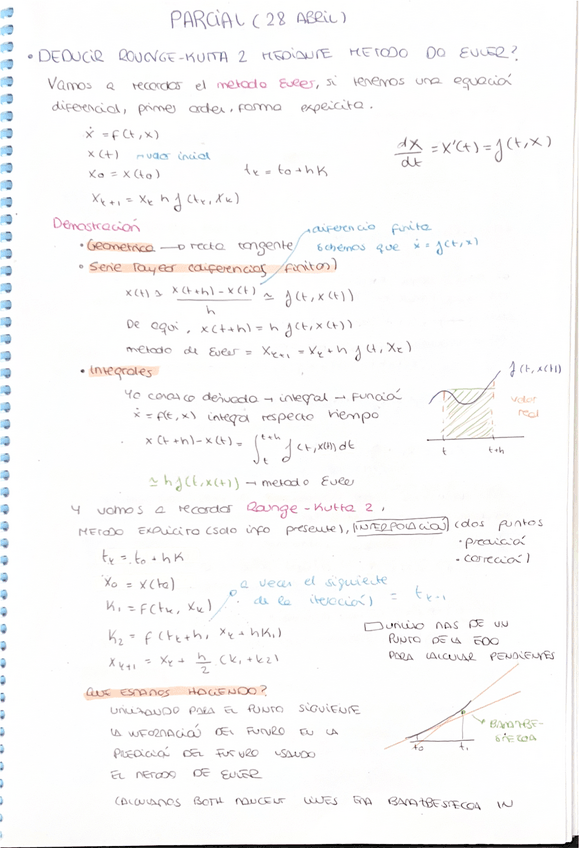 PARCIAL (28 ABRIL)
• DEDUCIR ROUNGE-KUTTA 2 MEDIANTE METODO DO EULER?
Vamos a recordar el metodo Euler, si tenemos una equación
diferencial, primer orden, forma explicita.
ẋ = f(t,x)
x(t) →valor incial
x₀ = x(t₀) tₖ = t₀ + hk
Xₖ₊₁ = Xₖ h f(tₖ, Xₖ)
dx/dt = x'(t) = f(t,x)
Demostración
• Geometrica → recta tangente
diferencia finita
sabemos que ẋ = f(t,x)
• Serie Taylor (diferencias finitas)
x(t) ≃ x(t+h) - x(t) / h ≃ f(t, x(t))
De aqui, x(t+h) = h f(t, x(t))
metodo de Euler = Xₖ₊₁ = Xₖ + h f(t, Xₖ)
• Integrales
Yo conozco derivada → integral → Función
ẋ = f(t,x) integral respecto tiempo
x(t+h) - x(t) = ∫ₜᵗ⁺ʰ f(t, x(t)) dt
≃ h f(t, x(t)) → metodo Euler
f(t, x(t))
valor
real
t t+h
Y vamos a recordar Range-Kutta 2,
METODO EXPLICITO (solo info presente), INTERPOLACION (dos puntos
• predicción
• corrección)
tₖ = t₀ + hk
X₀ = x(t₀)
K₁ = F(tₖ, Xₖ)
a veces el siguiente
de la iteración) = tₖ₋₁
K₂ = f(tₖ+h, Xₖ + hK₁)
Xₖ₊₁ = Xₖ + h/2 (k₁ + k₂)
UTILIZO MAS DE UN
PUNTO DE LA EDO
PARA CALCULAR PENDIENTES
QUE ESTAMOS HACIENDO?
UTILIZANDO PARA EL PUNTO SIGUIENTE
LA INFORMACIÓN DEL FUTURO EN LA
PREDICCIÓN DEL FUTURO USANDO
EL METODO DE EULER
t₀ t₁
CALCULAMOS BOTH IN